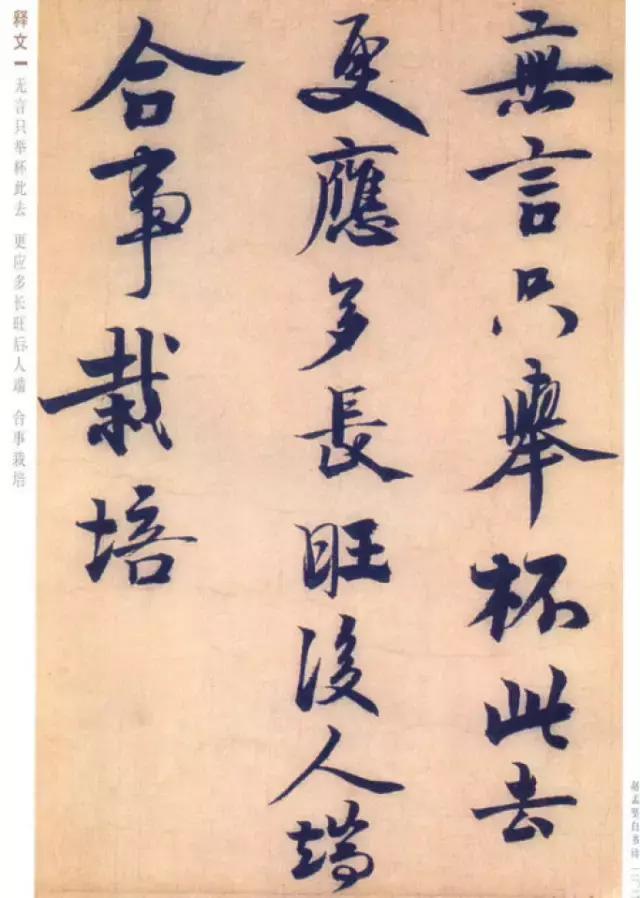 無言只舉杯此去
更應多長旺後人端
合事栽培
释文 一 无言只举杯此去 更应多长旺后人端 合事栽培
赵孟坚自书诗